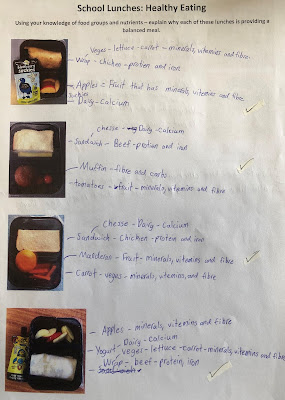 School Lunches: Healthy Eating
Using your knowledge of food groups and nutrients – explain why each of these lunches is providing a
balanced meal.
Veges - lettuce - carrot - minerals, vitamins and fibre
Wrap - Chicken - protien and iron
Apples - Fruit that has minerals, vitamins and fibre
Dairy - Calcium
chesse - Dairy - calcium
Sandwich - Beef - protien and iron
Muffin - fibre and carbs
tomatoes - fruit - minerals, vitamins and fibre
Chesse - Dairy - Calcium
Sandwich - Chicken - protein and iron
Mandarins - Fruit - minerals, vitamins and fibre
Carrot - veges - minerals, vitamins, and fibre
Apples - minerals, vitamins and fibre
Yogurt - Dairy - calcium
veges - lettuce - carrot - minerals, vitamins and fibre
Wrap - beef - protein, iron